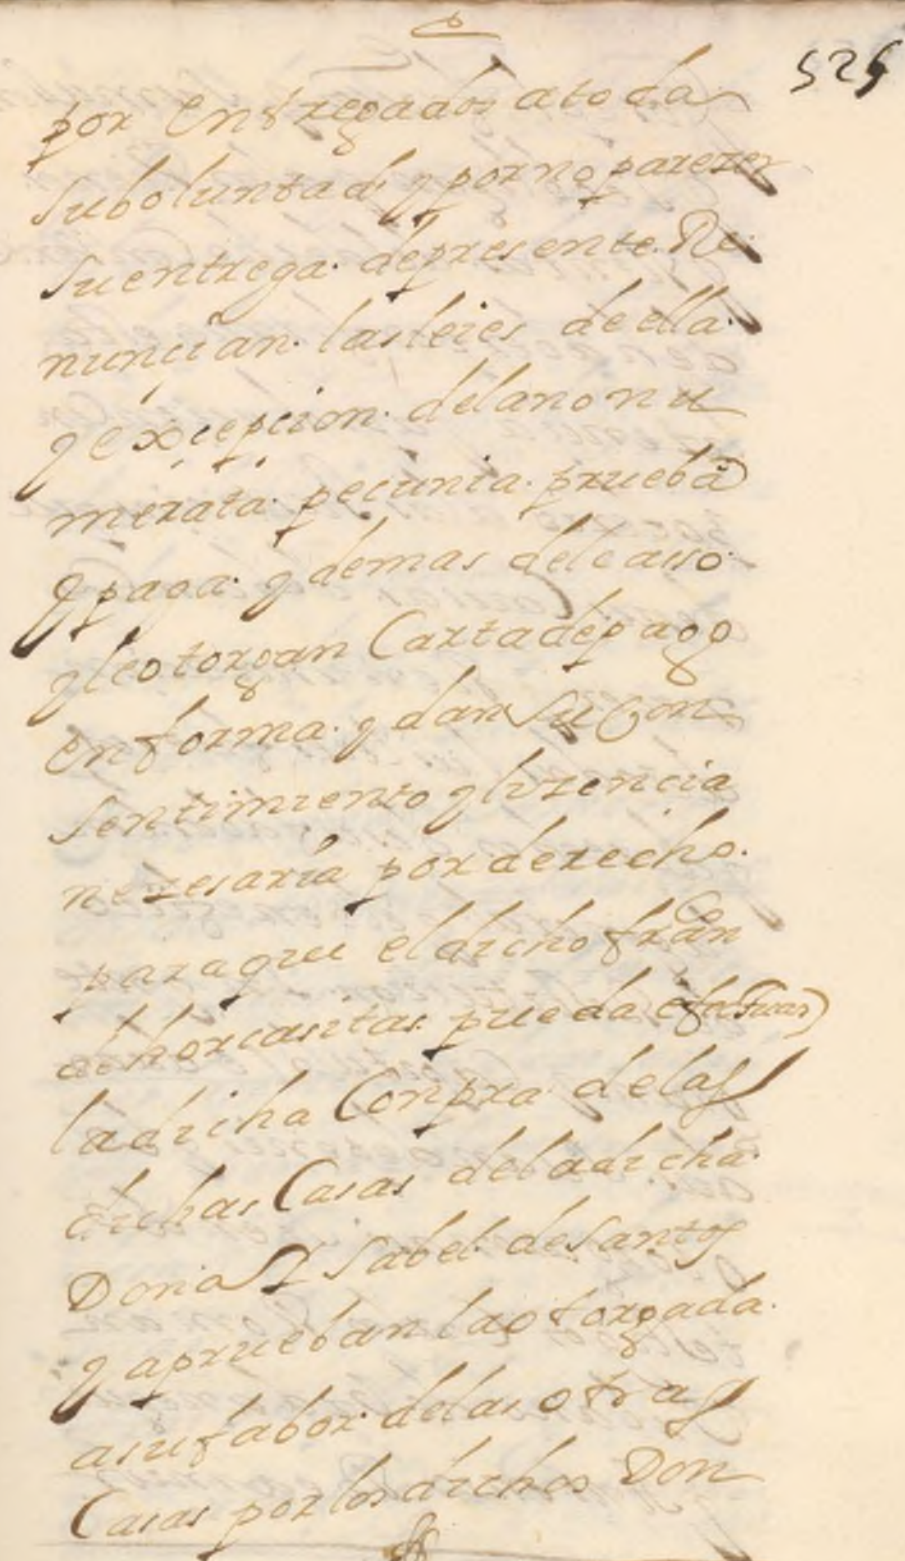 525
por entregados a toda
su boluntad y por no parezer
su entrega. de presente. Re
nuncian. las leies de ella.
y exçepcion. de la non nu
merata. pecunia. prueba
y paga. y demas del caso.
y le otorgan Carta de pago
en forma. y dan su Con
sentimiento y lizencia
nezesaria por derecho.
para que el dicho fran<sup>co</sup>
de horcasitas pueda efetuar
la dicha Conpra de las
dichas Casas de la dicha
Doña Isabel de Santos
y aprueban la otorgada.
a su fabor. de las otras
Casas por los dichos Don